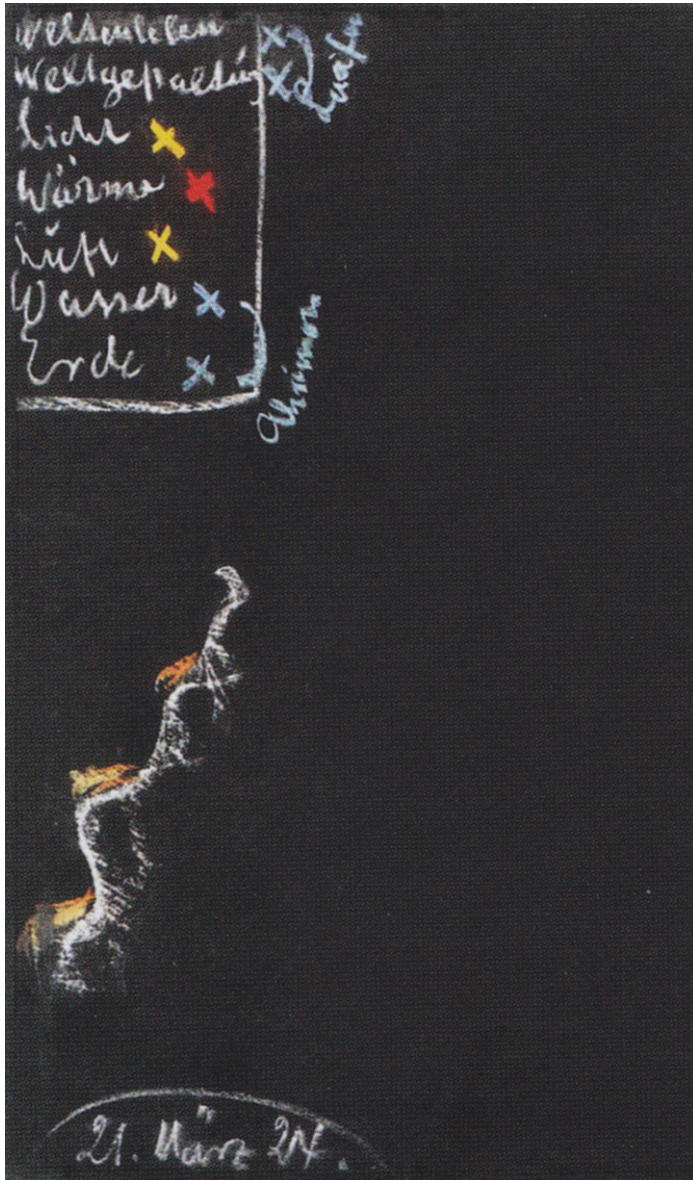 Weltenleben
Weltgestaltung
Luzifer
Licht
Wärme
Luft
Wasser
Erde
Ahriman
21. März 24.